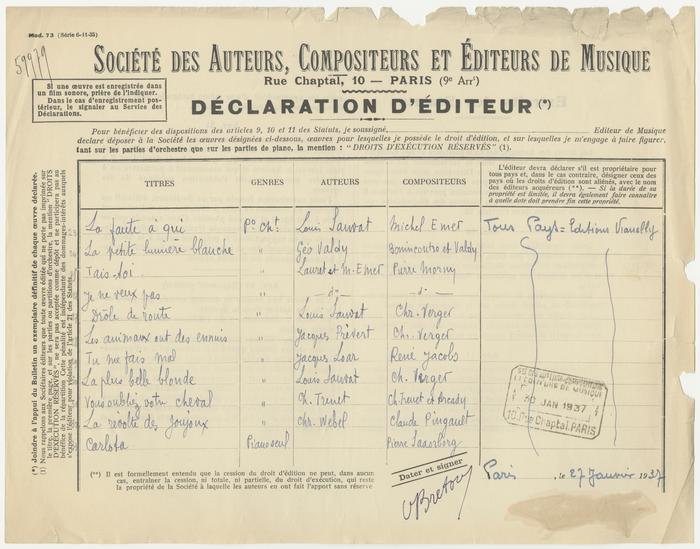 Mod. 73 (Série 6-11-35)
59979
SOCIÉTÉ DES AUTEURS, COMPOSITEURS ET ÉDITEURS DE MUSIQUE
Rue Chaptal, 10 — PARIS (9e Arrt)
Si une œuvre est enregistrée dans
un film sonore, prière de l'indiquer.
Dans le cas d'enregistrement pos-
térieur, le signaler au Service des
Déclarations.
DÉCLARATION D'ÉDITEUR (*)
Pour bénéficier des dispositions des articles 9, 10 et 11 des Statuts, je soussigné, Editeur de Musique
déclare déposer à la Société les œuvres désignées ci-dessous, œuvres pour lesquelles je possède le droit d'édition, et sur lesquelles je m'engage à faire figurer,
tant sur les parties d'orchestre que sur les parties de piano, la mention : "DROITS D'EXÉCUTION RÉSERVÉS" (1).
TITRES GENRES AUTEURS COMPOSITEURS
L'éditeur devra déclarer s'il est propriétaire pour
tous pays et, dans le cas contraire, désigner ceux
des pays où les droits d'édition sont aliénés, avec le nom
des éditeurs acquéreurs (**). — Si la durée de sa
propriété est limitée, il devra également faire
connaître à quelle date doit prendre fin cette propriété.
La faute à qui Po cht. Louis Sauvat Michel Emer Tous Pays = Editions Vianelly
La petite lumière blanche " Géo Valdy Bonincontro et Valdy
Tais-toi " Lauret et M. Emer Pierre Morny
Je ne veux pas " —d°—
Drôle de route " Louis Sauvat Chr. Verger
Les animaux ont des ennuis " Jacques Prévert Ch. Verger
Tu me fais mal " Jacques Loar René Jacobs
La plus belle blonde " Louis Sauvat Ch. Verger
Vous oubliez votre cheval " Ch. Trenet Ch. Trenet et Arcady
La révolte des joujoux " Chr. Webel Claude Pingault
Carlota Piano seul Pierre Saarberg
10, Rue Chaptal, PARIS
30 JAN 1937
(**) Il est formellement entendu que la cession du droit d'édition ne peut, dans aucun
cas, entraîner la cession, ni totale, ni partielle, du droit d'exécution, qui reste
la propriété de la Société à laquelle les auteurs en ont fait l'apport sans réserve
Dater et signer
Paris, le 27 Janvier 1937
(*) Joindre à l'appui du Bulletin un exemplaire définitif de chaque œuvre déclarée.